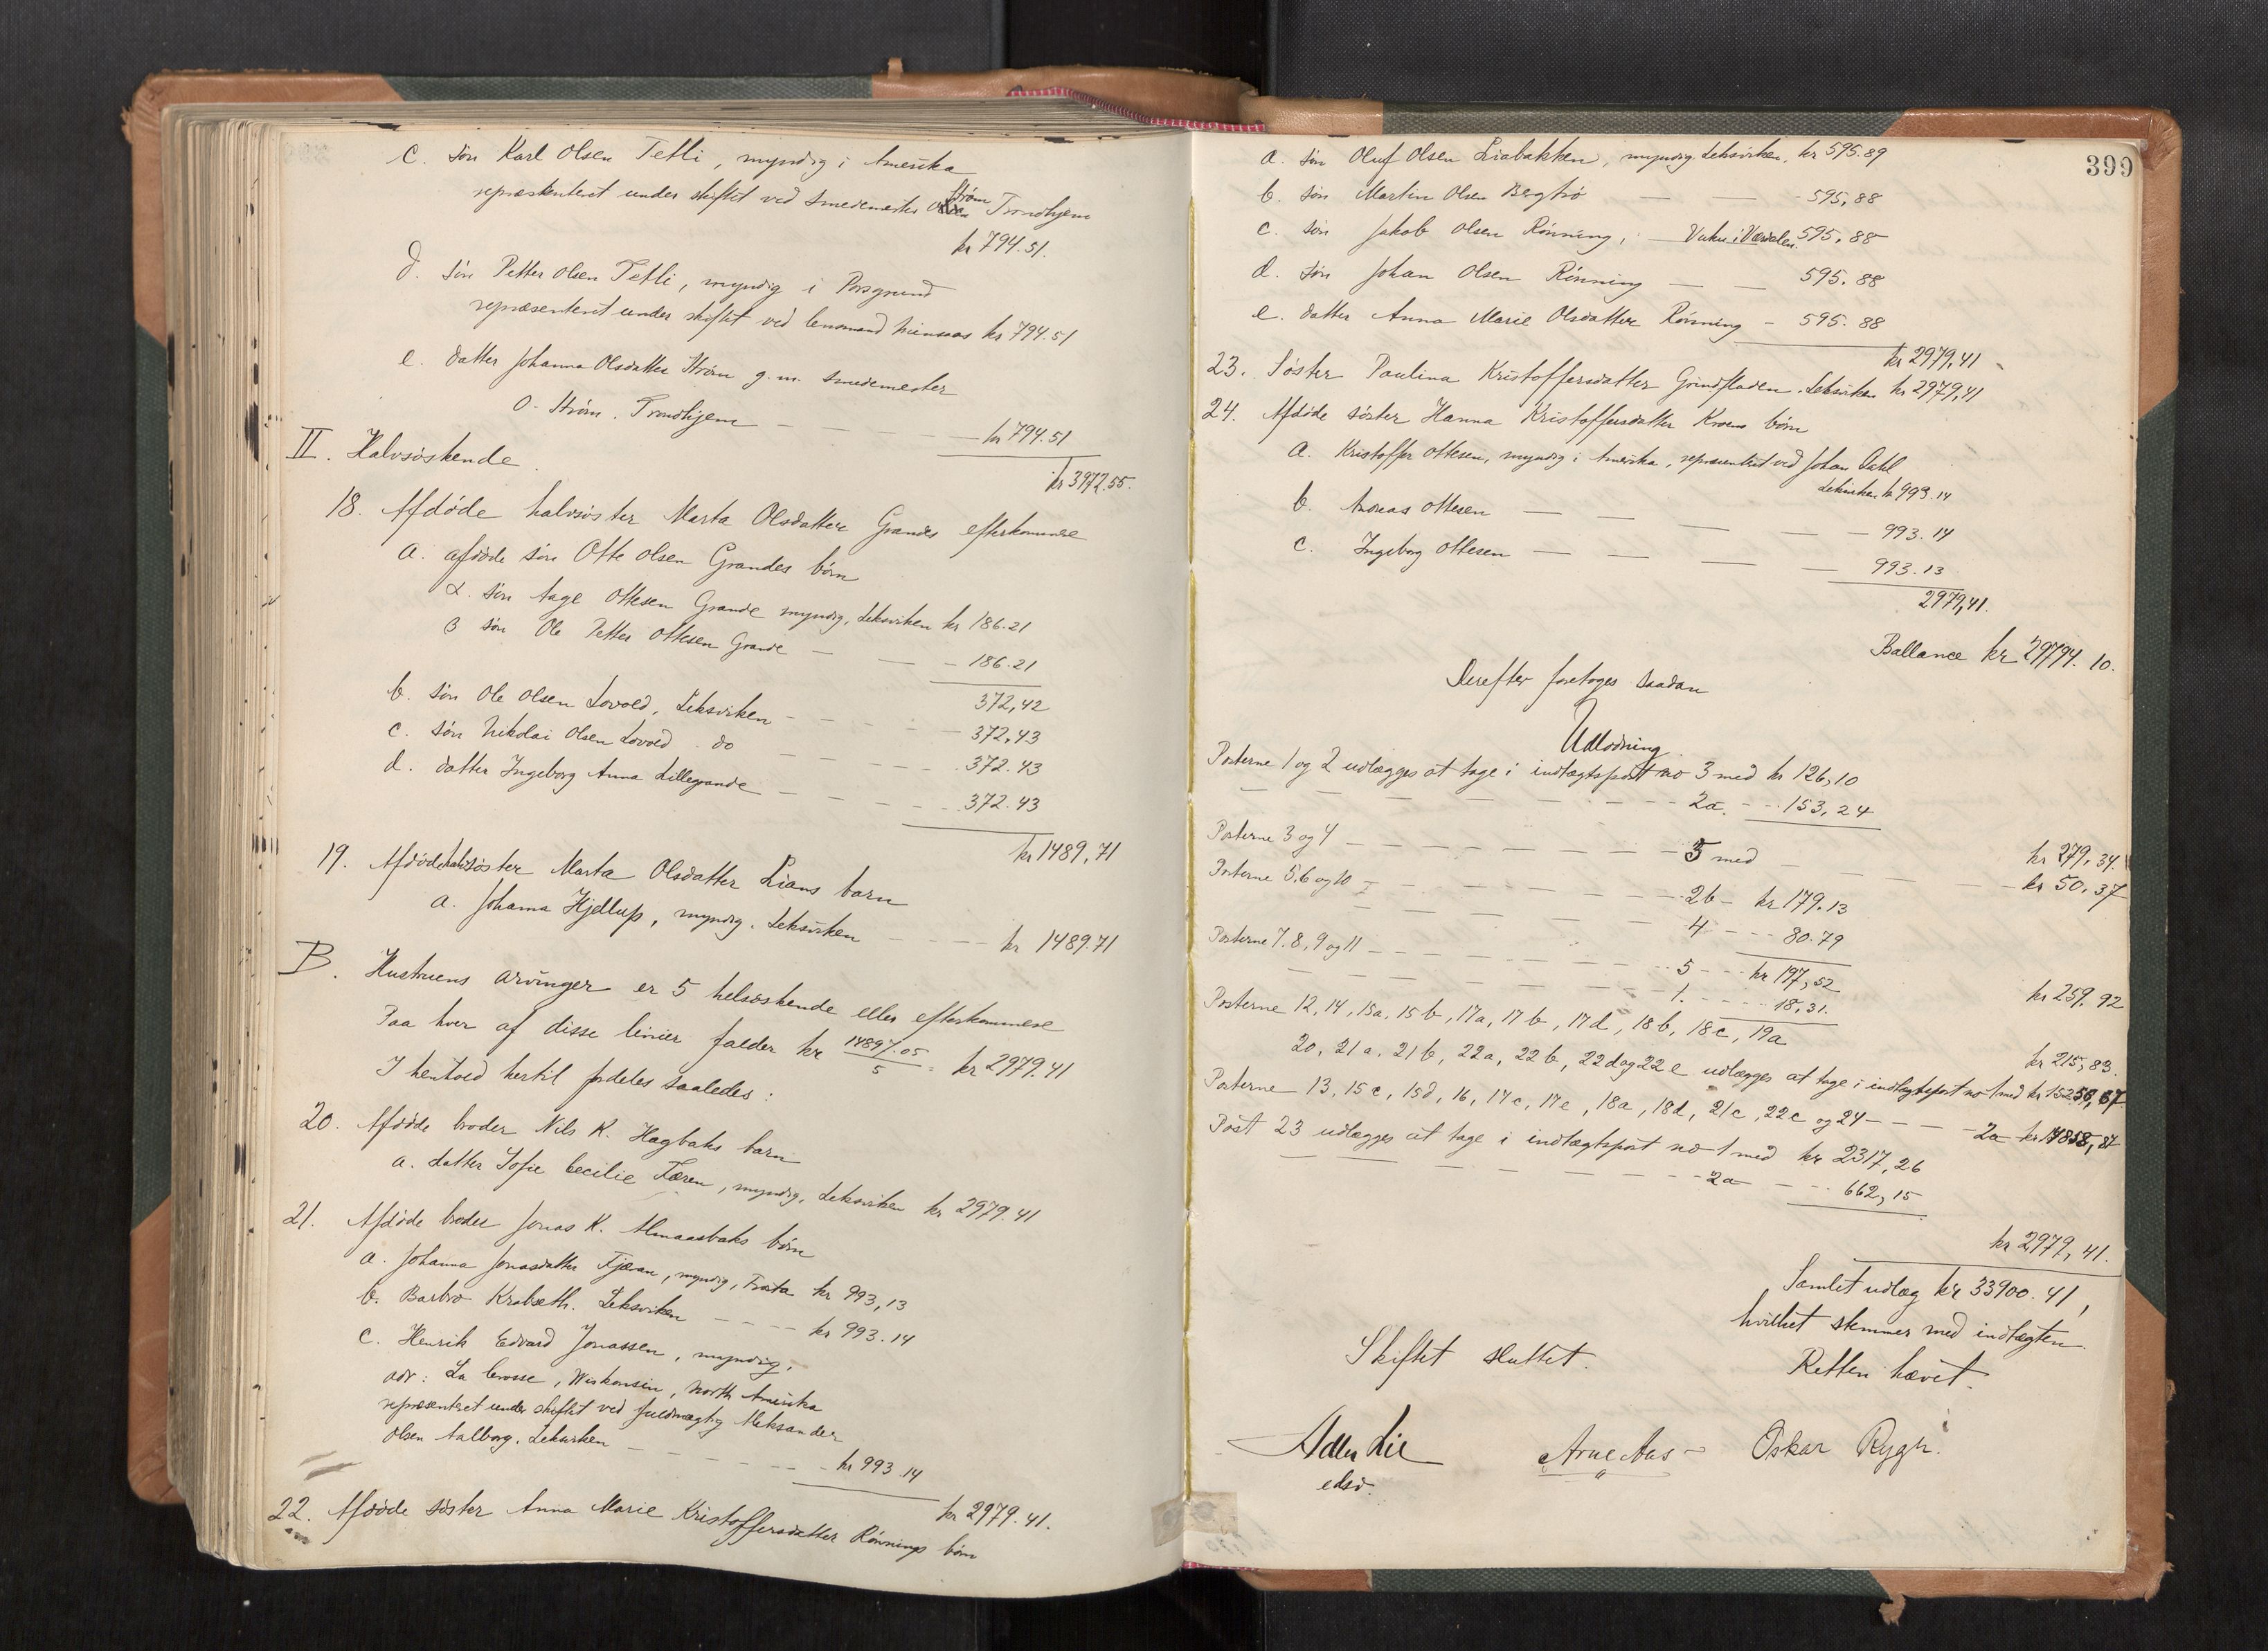 c. søn Karl Olsen Tetli, myndig i Amerika
repræsenteret under skiftet ved smedemester Strøm Trondhjem
kr 794.51.
d. søn Petter Olsen Tetli, myndig i Porsgrund
repræsenteret under skiftet ved lensmand kr 794.51
e. datter Johanna Olsdatter Strøm g.m. smedemester
O. Strøm. Trondhjem — — — — kr 794.51
kr 3972.55.
II. Halvsøskende.
18. Afdøde halvsøster Marta Olsdatter Grandes efterkommere
a. afdøde søn Otte Olsen Grandes børn
α. søn Aage Ottesen Grande myndig, Leksviken kr 186.21
β søn Ole Petter Ottesen Grande — — — 186.21
372,42
b. søn Ole Olsen Lovold, Leksviken - - - - 372,43
c. søn Nikolai Olsen Lovold do - - - - 372.43
d. datter Ingeborg Anna Lillegrande - - - - 372.43
kr 1489,71
19. Afdøde halvsøster Marta Olsdatter Lians barn
a. Johanna Hjellup, myndig, Leksviken - - - kr 1489.71
B. Hustruens arvinger er 5 helsøskende eller efterkommere
Paa hver af disse linier falder kr 14897.05/5 = kr 2979.41
I henhold hertil fordeles saaledes:
20. Afdøde broder Nils K. Hagbaks barn
a. datter Sofie Cecilie Færen, myndig, Leksviken kr 2979.41
21. Afdøde broder Jonas K. Almaasbaks børn
a. Johanna Jonasdatter Fjæran, myndig, Frosta kr 993,13
b. Barbro Krabseth. Leksviken - - - - kr 993.14
c. Henrik Edvard Jonassen, myndig,
adr: La Crosse, Wiskonsin, North Amerika
repræsenteret under skiftet ved fuldmægtig Aleksander
Olsen Aalborg, Leksviken - - - - - kr 993.14
kr 2979.41.
22. Afdøde søster Anna Marie Kristoffersdatter Rønnings børn
399
a. søn Oluf Olsen Liabakken, myndig. Leksviken, kr 595.89
b. søn Martin Olsen Bergtrø — — - 595,88
c. søn Jakob Olsen Rønning, — Vuku i Værdalen, 595,88
d. søn Johan Olsen Rønning — — 595.88
e. datter Anna Marie Olsdatter Rønning - 595.88
kr 2979,41
23. Søster Paulina Kristoffersdatter Grindfladen. Leksviken kr 2979,41
24. Afdøde søster Hanna Kristoffersdatter børn
a. Kristoffer Ottesen, myndig i Amerika, repræsentret ved Johan Dahl
Leksviken kr 993.14
b. Andreas Ottesen — — — — — 993.14
c. Ingeborg Ottesen — — — — 993.13
2979,41.
Ballance kr 29794.10.
Derefter foretoges saadan
Udlodning
Posterne 1 og 2 udlægges at tage i indtægtspost no 3 med kr 126,10
— — — — — — — - - 2a. - - - 153,24
kr 279,34.
Posterne 3 og 4 — — — — — — 3 med — — — — kr 50,37
Posterne 5, 6 og 10 — — — — — — 2b - kr 179.13
— — — — — — — 4 - - - 80.79
kr 259,92
Posterne 7, 8, 9 og 11 — — — — — — 5 - - - kr 197,52
— — — — — — — 1. - - - - 18,31.
kr 215,83.
Posterne 12, 14, 15a, 15b, 17a, 17b, 17d, 18b, 18c, 19a
20, 21a, 21b, 22a, 22b, 22d og 22e udlægges at tage i indtægtspost no 1 med kr 15256,67
Posterne 13, 15c, 15d, 16, 17c, 17e, 18a, 18d, 21c, 22c og 24 - - - - 2a kr 14858,87
Post 23 udlægges at tage i indtægtspost no 1 med kr 2317,26
— — — — — — — - 2a — - - 662,15
kr 2979,41.
Samlet udlæg kr 33900.41,
hvilket stemmer med indtægten.
Skiftet sluttet.
Retten hævet.
Adler Lie
edsv.
Arne Aas
Oskar Rygh.